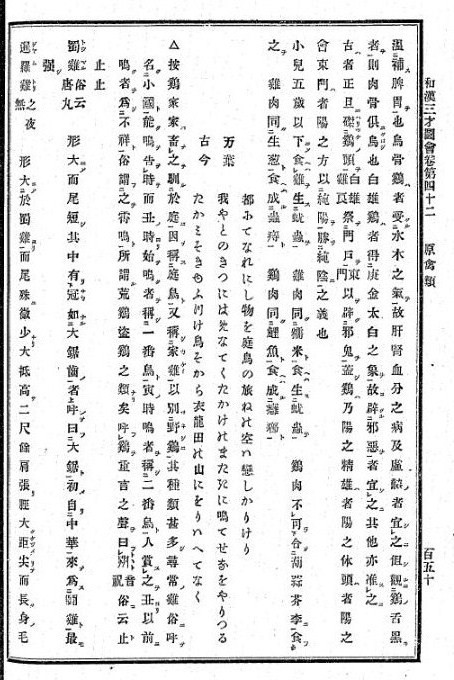 和漢三才圖會卷第四十二　原禽類　百五十
溫補脾胃也烏骨鷄者受水木之氣故肝腎血分之病及虛𤍠者宜之但觀鷄舌黑
者則肉骨俱烏也白雄鷄者得庚金太白之象故辟邪惡者宜之其他亦准之
古者正旦磔鷄頭雄鷄祭門戸以辟邪鬼蓋鷄乃陽之精雄者陽之體頭者陽之
會東門者陽之方以純陽勝純陰之義也
小兒五歲以下食鷄生蚘蟲　雞肉同糯米食生蚘蟲　鷄肉不可合葫蒜芥李食
之　雞肉同生葱食成蟲痔　鷄肉同鯉魚食成癰癤
都ふてなれにし物を庭鳥の旅ねの空ハ戀しかりけり
万葉　我やとのきつにはめなてくたかけのまた死に鳴てせなをやりつる
古今　たかみそきゆふつけ鳥そから衣龍田の山にをりハへてなく
△按鷄家家畜之馴於庭因稱庭鳥又稱家雞以別野鷄其種類甚多尋常雞俗呼
名小國能鳴告時而丑時始鳴者稱一番鳥寅時鳴者稱二番鳥人賞之丑以前
鳴者爲不祥俗謂之宵鳴所謂荒鷄盜鷄之類矣呼鷄重言之聲曰𠴫𠴫音祝俗云止
止止
蜀雞俗云唐丸　形大而尾短其中有冠如大鋸齒者呼曰大鋸初自中華來爲鬪雞最
强
暹羅雞之夜無　形大於蜀雞而尾殊微少大抵高二尺餘肩張脛大距尖而長身毛